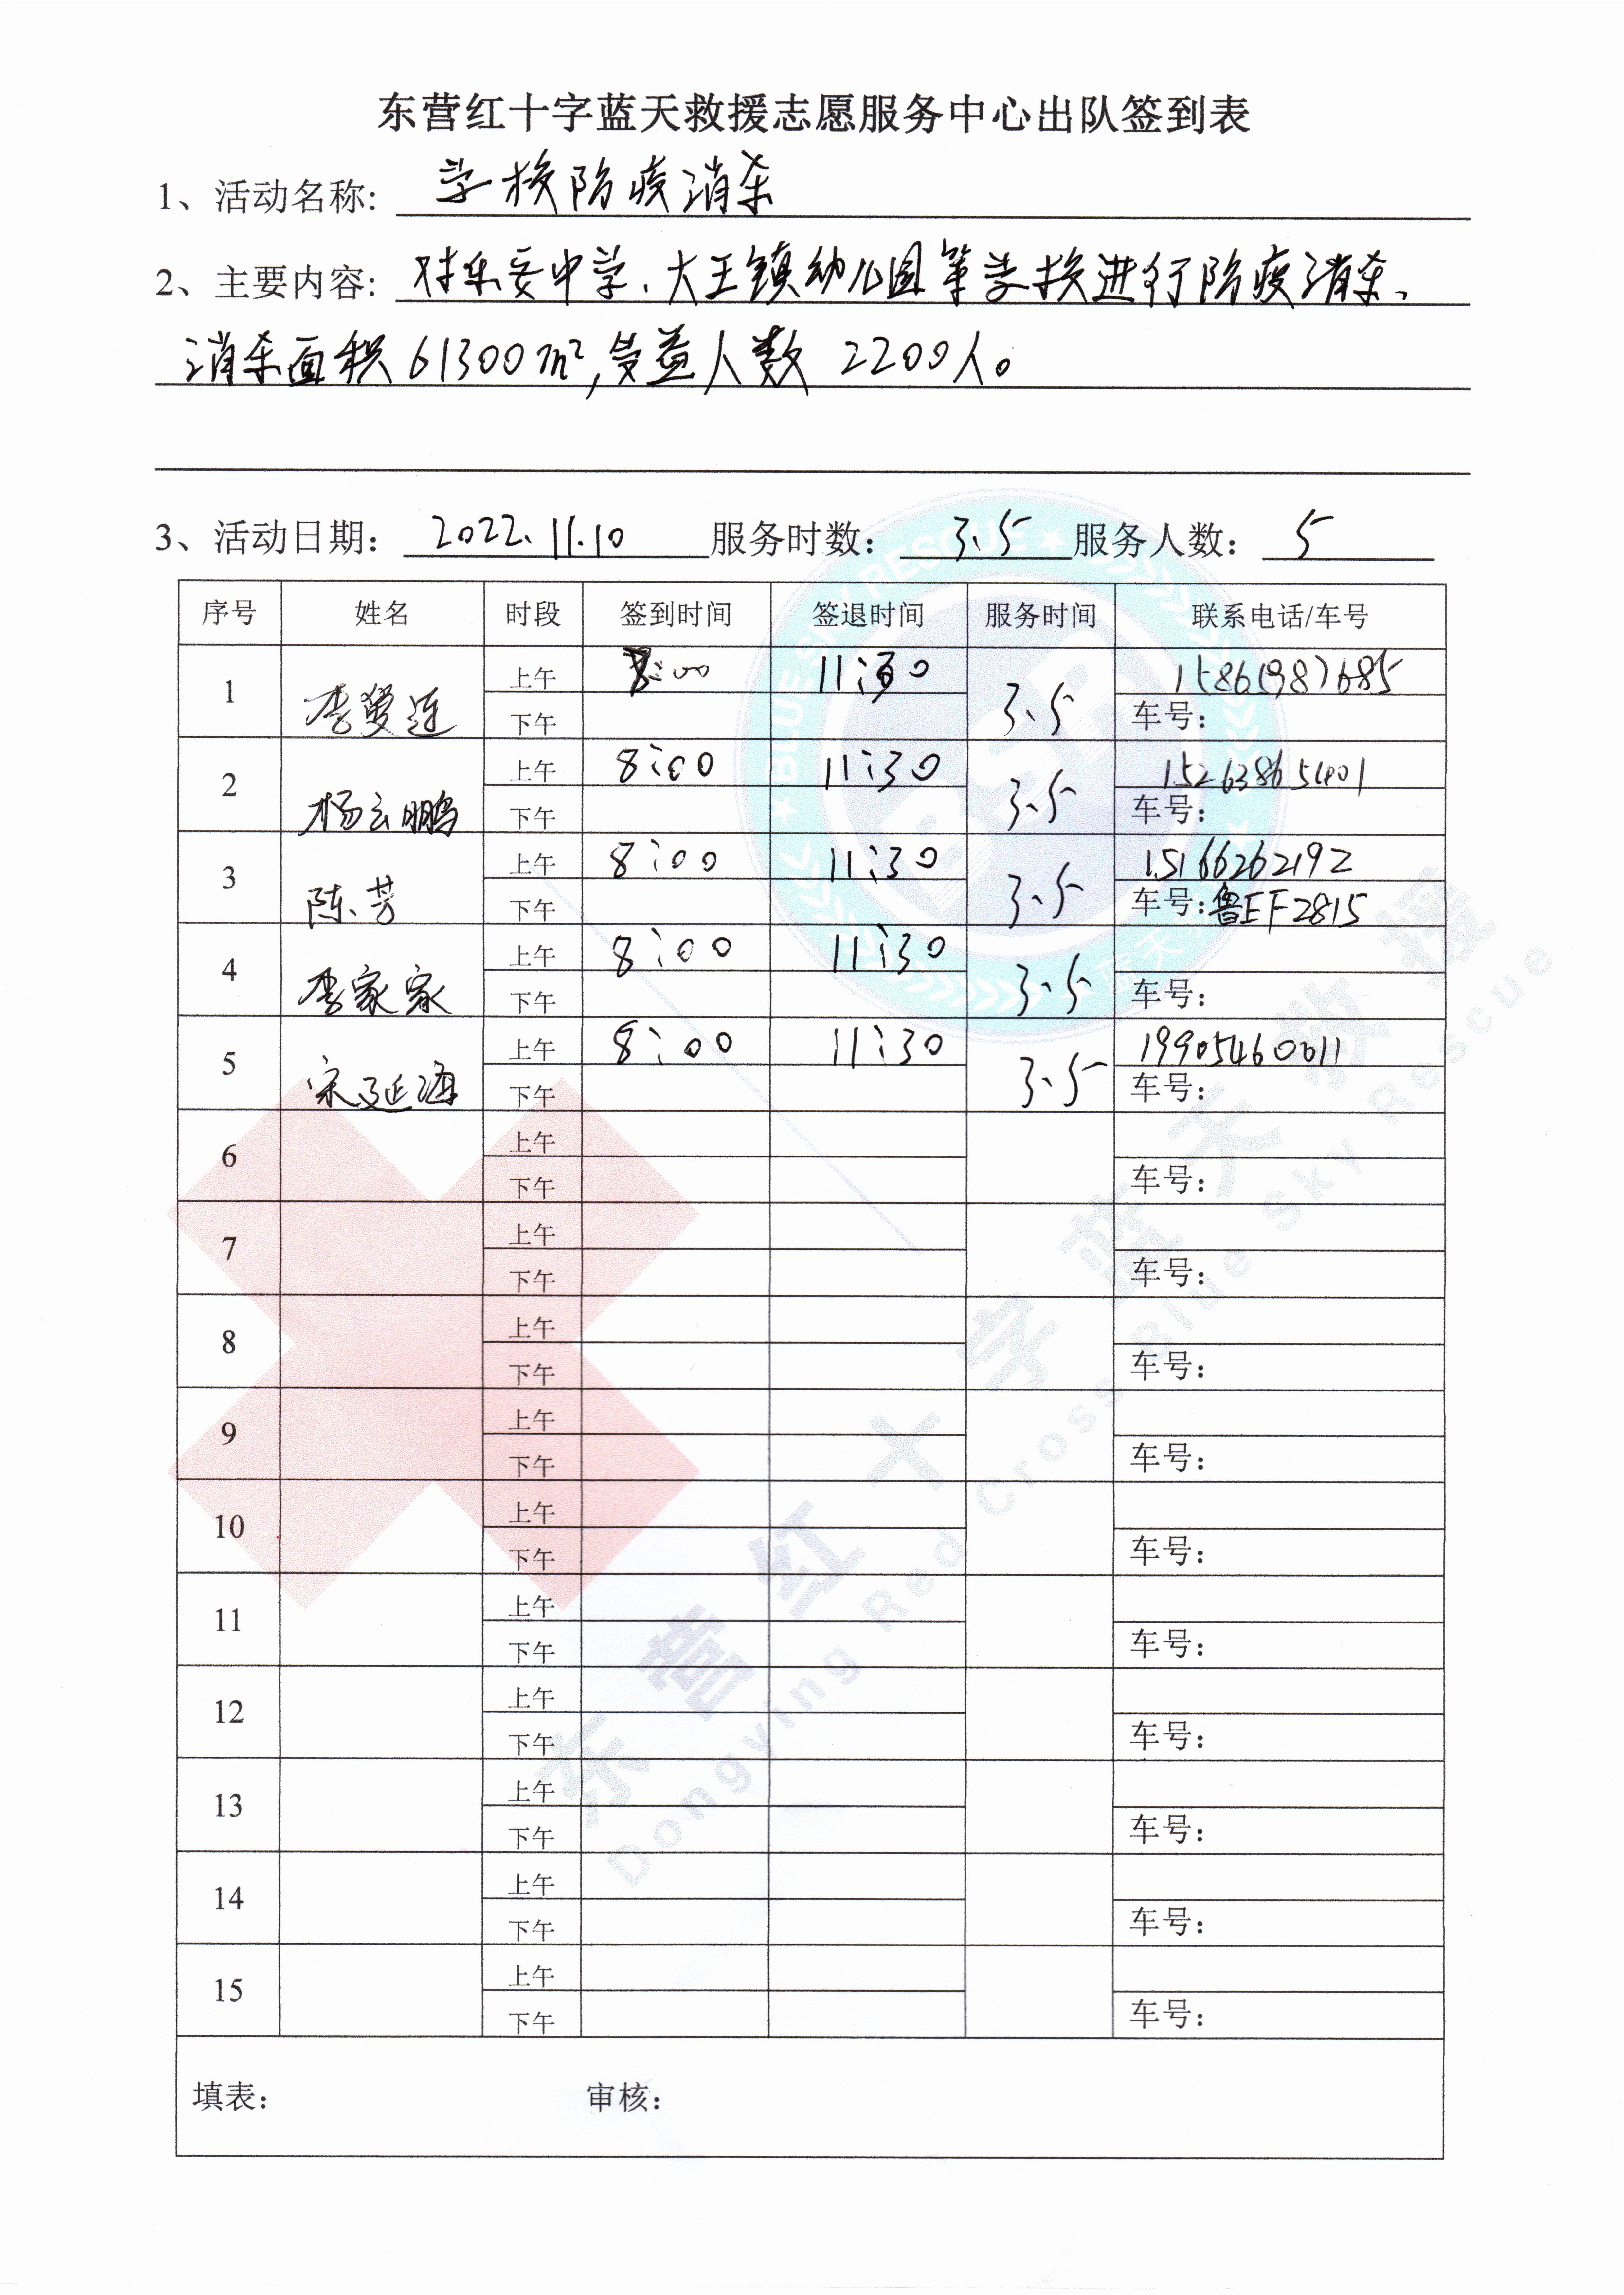 东营红十字蓝天救援志愿服务中心出队签到表
1、活动名称: 学校防疫消杀
2、主要内容: 对乐安中学、大王镇幼儿园等学校进行防疫消杀、
消杀面积61300m²,受益人数 2200人。
3、活动日期: 2022.11.10 服务时数: 3.5 服务人数: 5
序号 姓名 时段 签到时间 签退时间 服务时间 联系电话/车号
1 李爱连 上午 8:00 11:30 3.5 15865987685
下午 车号:
2 杨云鹏 上午 8:00 11:30 3.5 15263865401
下午 车号:
3 陈芳 上午 8:00 11:30 3.5 15166262192
下午 车号:鲁EF2815
4 李家家 上午 8:00 11:30 3.5
下午 车号:
5 宋延海 上午 8:00 11:30 3.5 19905460011
下午 车号:
6 上午
下午 车号:
7 上午
下午 车号:
8 上午
下午 车号:
9 上午
下午 车号:
10 上午
下午 车号:
11 上午
下午 车号:
12 上午
下午 车号:
13 上午
下午 车号:
14 上午
下午 车号:
15 上午
下午 车号:
填表: 审核:
BLUE SKY RESCUE
蓝天救援
东营红十字蓝天救援
Dongying Red Cross Blue Sky Rescue